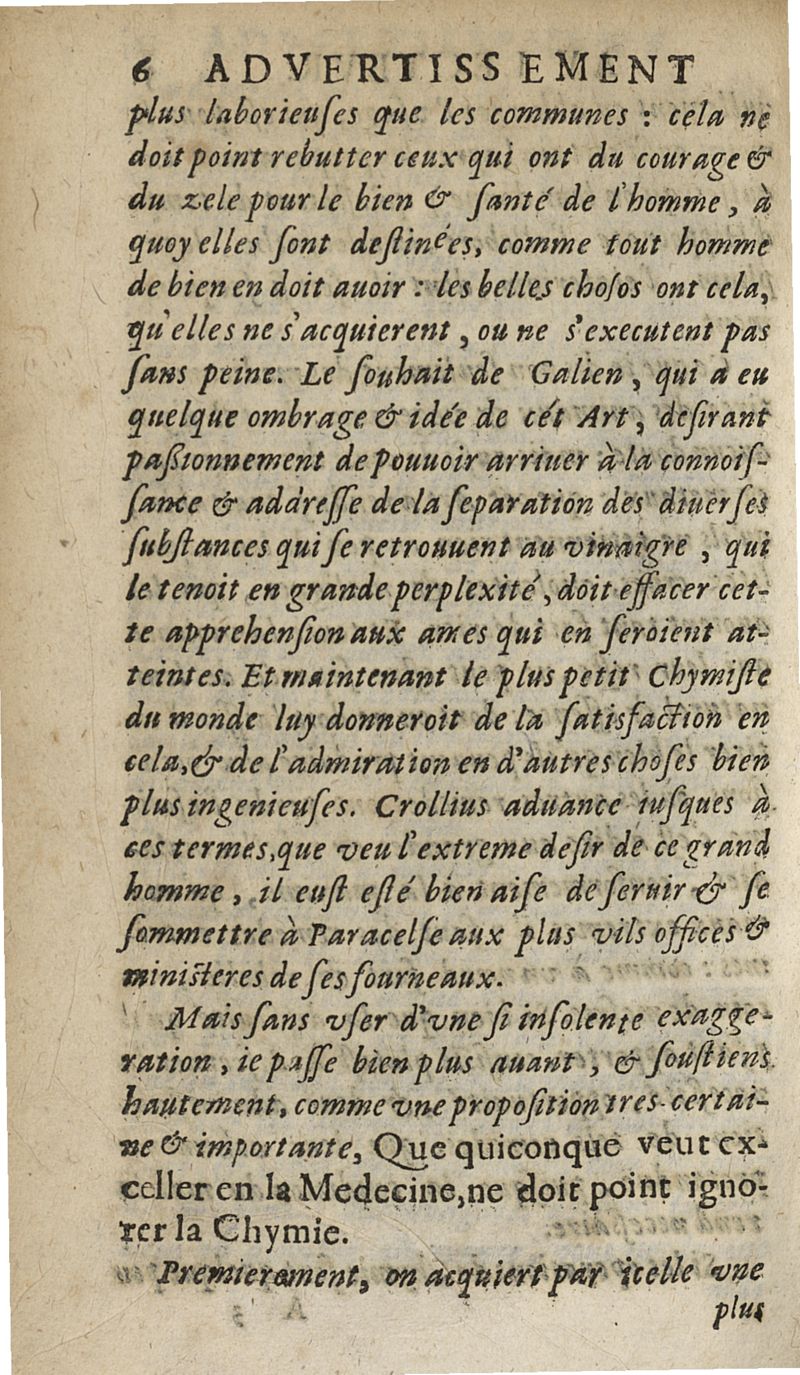 6 ADVERTISSEMENT
plus laborieuſes que les communes : cela ne
doit point rebutter ceux qui ont du courage &
du zele pour le bien & ſanté de l'homme, à
quoy elles ſont deſtinées, comme tout homme
de bien en doit auoir : les belles choſos ont cela,
qu'elles ne s'acquierent, ou ne s'executent pas
ſans peine. Le ſouhait de Galien, qui a eu
quelque ombrage & idée de cét Art, deſirant
paßionnement de pouuoir arriuer à la connoiſ-
ſance & addreſſe de la ſeparation des diuerſes
ſubſtances qui ſe retrouuent au vinaigre, qui
le tenoit en grande perplexité, doit effacer cet-
te apprehenſion aux ames qui en ſeroient at-
teintes. Et maintenant le plus petit Chymiſte
du monde luy donneroit de la ſatisfaction en
cela, & de l'admiration en d'autres choſes bien
plus ingenieuſes. Crollius aduance iuſques à
ces termes, que veu l'extreme deſir de ce grand
homme, il euſt eſté bien aiſe de ſeruir & ſe
ſommettre à Paracelſe aux plus vils offices &
miniſteres de ſes fourneaux.
Mais ſans vſer d'vne ſi inſolente exagge-
ration, ie paſſe bien plus auant, & ſouſtiens
hautement, comme vne propoſition tres-certai-
ne & importante, Que quiconque veut ex-
celler en la Medecine, ne doit point igno-
rer la Chymie.
Premierement, on acquiert par icelle vne
plus